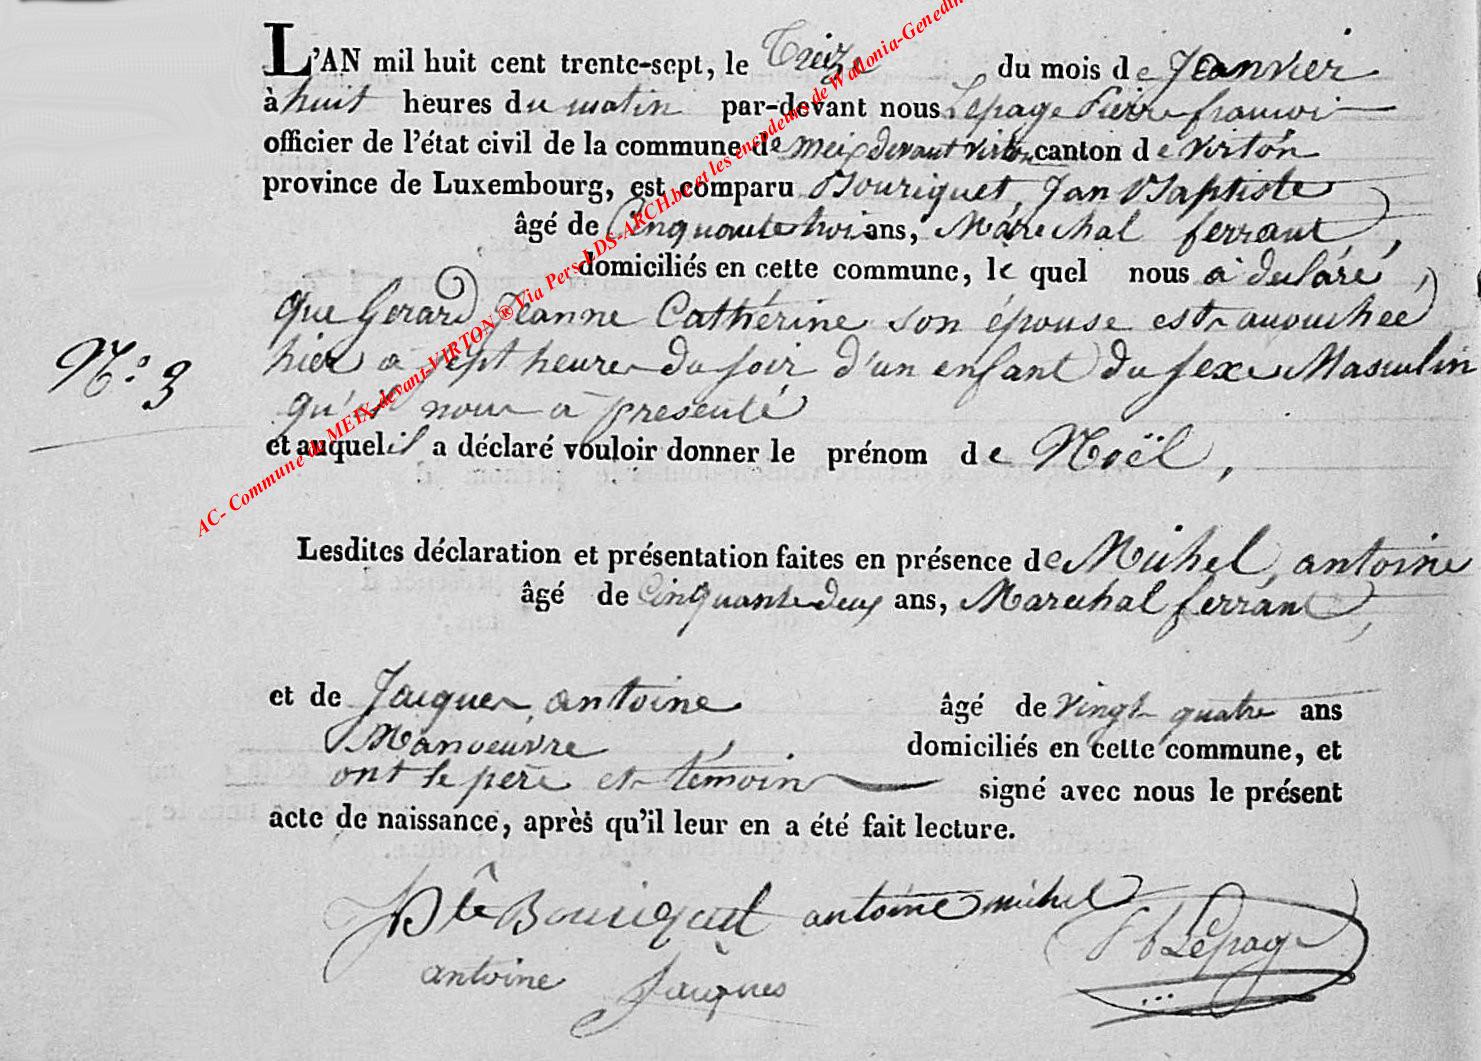 L'AN mil huit cent trente-sept, le Treize du mois de Janvier
à huit heures du matin par-devant nous Lepage Pierre francois
officier de l'état civil de la commune de meix devant virton canton de virton
province de Luxembourg, est comparu Bouriquet, Jan Baptiste
âgé de Cinquante trois ans, Maréchal ferrant,
domiciliés en cette commune, le quel nous a déclaré,
que Gerard Jeanne Cathérine son épouse est accouchée
hier a sept heures du soir d'un enfant du sexe Masculin
N.° 3
qu'il nous a présenté
et auquel il a déclaré vouloir donner le prénom de Noël,
Lesdites déclaration et présentation faites en présence de Michel, antoine
âgé de Cinquante deux ans, Marechal ferrant,
et de Jacques, antoine âgé de vingt quatre ans
Manoeuvre, domiciliés en cette commune, et
ont le père et témoin signé avec nous le présent
acte de naissance, après qu'il leur en a été fait lecture.
JBte Bouriquet antoine michel
antoine Jacques
Pf Lepage
AC- Commune de MEIX-devant-VIRTON ® Via Pers-LDS-ARCH.be et les encodeurs de Wallonia-Genedin